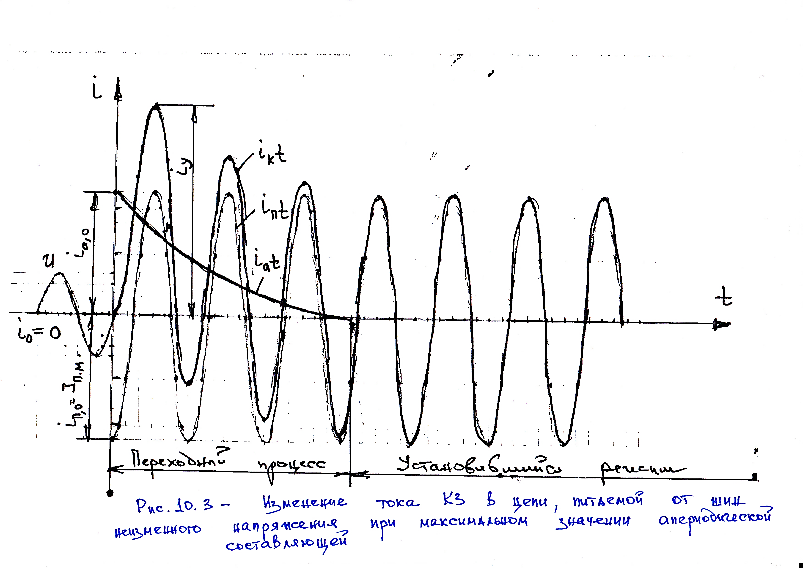 i
i_y
i_кt
i_пt
i_a,0
i_at
u
t
i_0 = 0
i_п,0 = I_п.м.
Переходный процесс
Установившийся режим
Рис. 10.3 – Изменение тока КЗ в цепи, питаемой от шин
неизменного напряжения при максимальном значении апериодической
составляющей